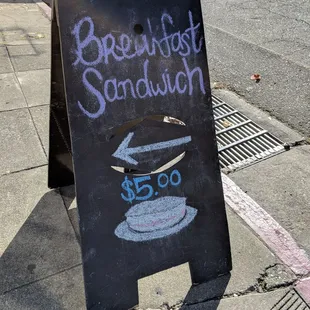 Breakfast
Sandwich
$5.00